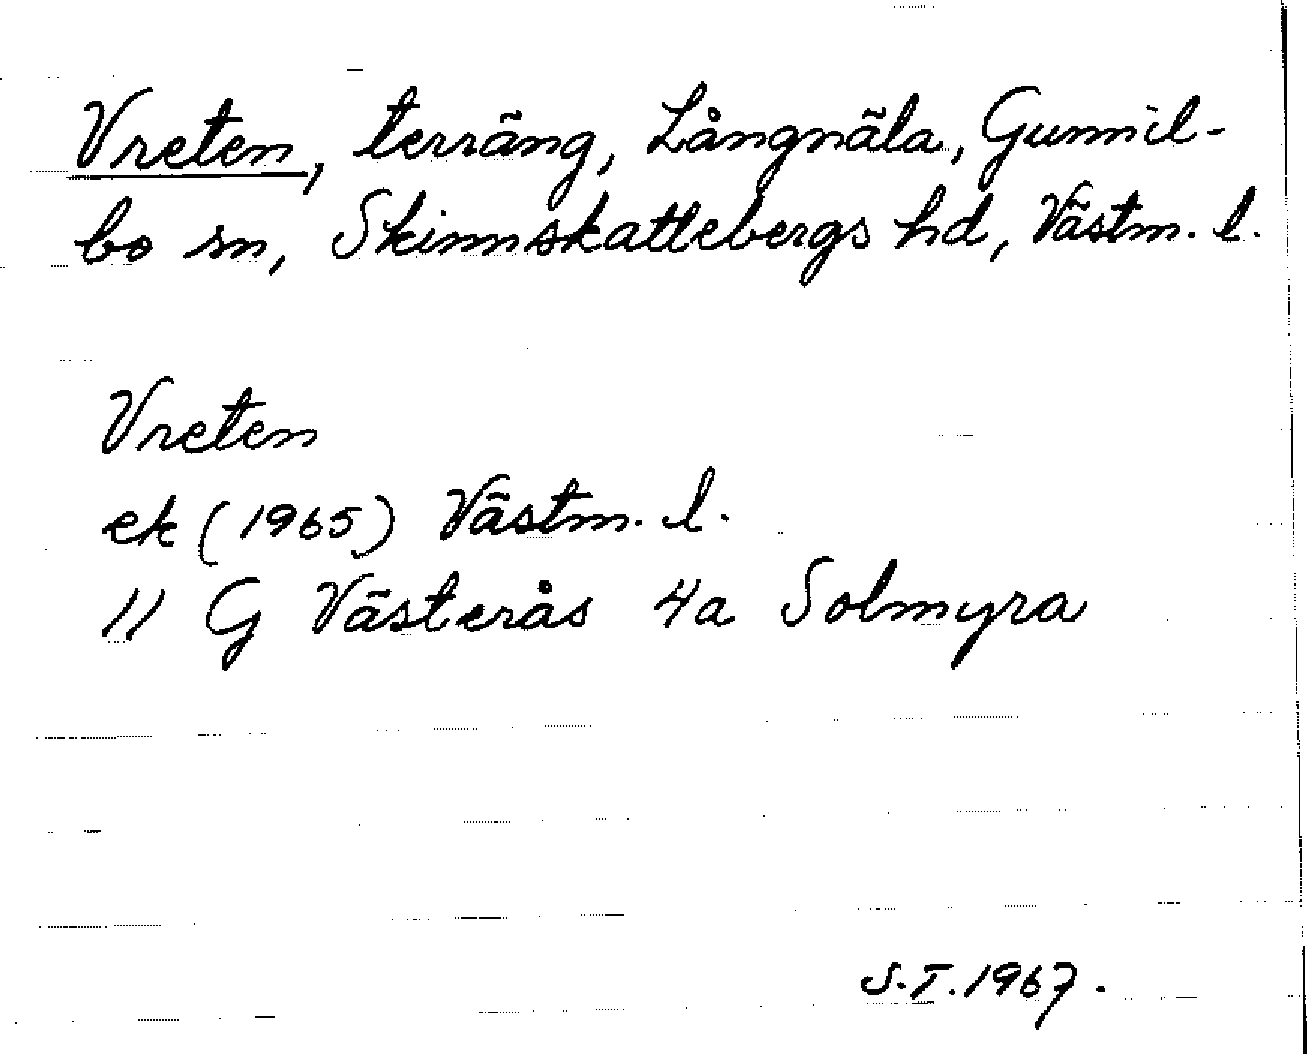 Vreten, terräng, Långnäla, Gunnil-
bo sn, Skinnskattebergs hd, Västm. l.
Vreten
ek (1965) Västm. l.
11 G Västerås 4a Solmyra
S.T. 1967.